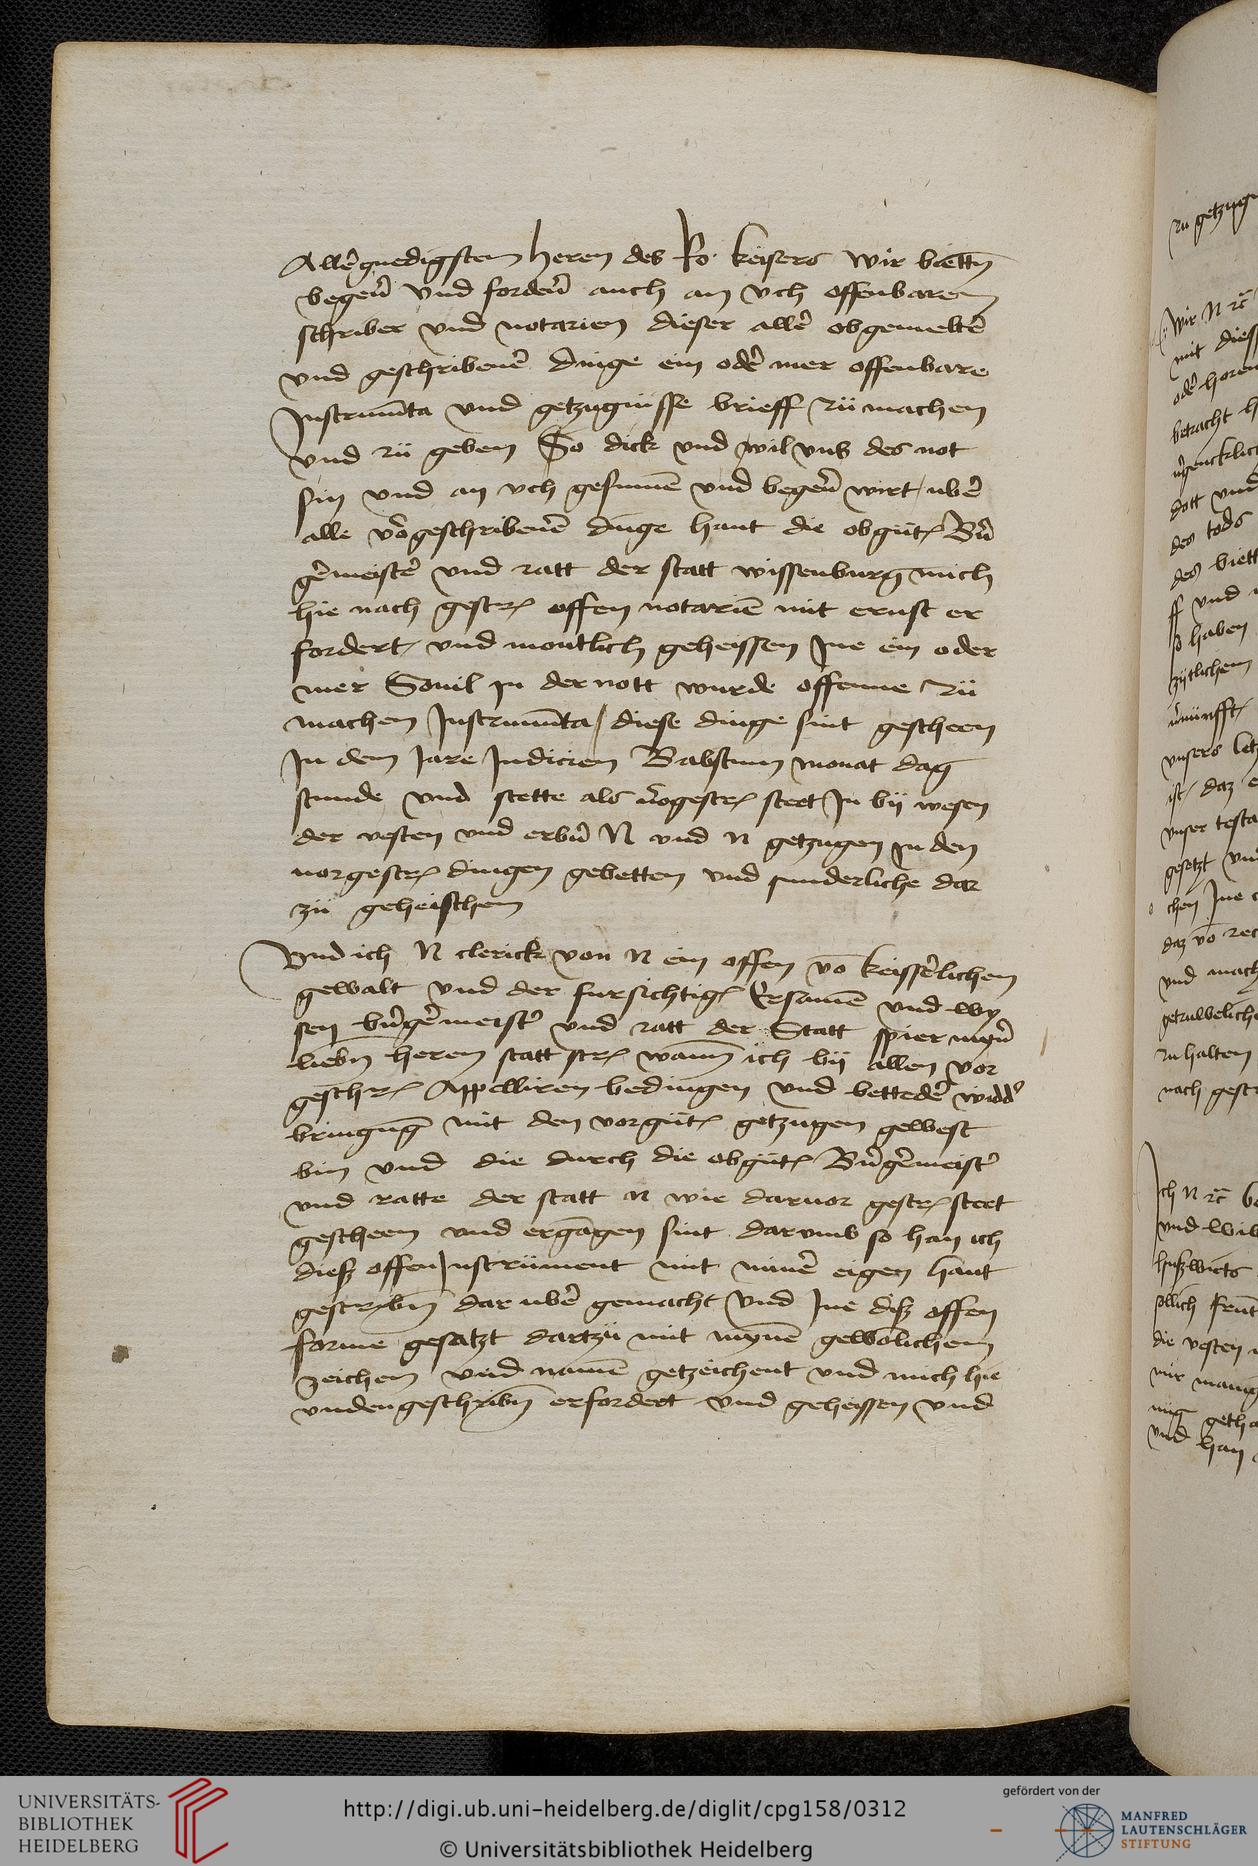 Allergnedigsten heren des Ro. keisers wir biettn̄
begern̄ vnd fordern̄ auch an vch offenbaren
schriber vnd notarien dieser aller obgemelten̄
vnd geschribenē dinge ein oder mer offenbare
Instrumēta vnd getzugnisse brieff zü machen
vnd zü geben So dick vnd wil vns des not
sin vnd an vch gesunnē vnd begern̄ wirt / uber
alle vōgeschribenē dinge hant die obgnt Bur
germeister vnd ratt der statt wissenburg mich
hie nach gescr offen notariē mit ernst er
fordert / vnd montlich geheissen Ine ein oder
mer Souil in der nott wurde offenne zü
machen Instrumēta / diese dinge sint gescheen
In dem Jare Indicien Babstum monat dag
stunde vnd stette als vōgescr steet In bij wesen
der vesten vnd erbn̄ N vnd n getzugen in den
uorgescr dingen gebetten vnd sunderliche dar
zü geheischem
Vnd ich N clerick von n ein offen vō keisserlichem
gewalt vnd der fursichtig Ersamē vnd wy
sen burgermeister vnd ratt der Statt spier myn̄
liebn̄ heren statt scr wann ich bij allen vor
geschr Appelliren bedingen vnd betteder widder
bringung mit den vorgnt getzugen gewest
bin vnd die durch die obgnt Burgermeister
vnd ratte der statt n wie daruor gescr steet
gescheen vnd ergāgen sint darumb so han ich
diesz offen Instrüment mit minē eigen hant
gescrybn̄ dar uber gemacht vnd Ine disz offen
forme gesatzt dartzü mit mynē gewōlichem
zeichem vnd namē getzeichent vnd mich hie
vnden geschribn̄ erfordert vnd geheissen vnd
zu getzugn
Wir N rc
mit diess
oder horen
betracht
dott vnd
des tods
des biett
vnd
so haben
zytlichem
vnsers letz
ist / daz
vnser testa
gesetzt vnd
chen Ine
daz vō rec
vnd mach
getruwelich
zu halten
nach gescr
Ich N rc
vnd wib
die vesten
vnd han
UNIVERSITÄTS-
BIBLIOTHEK
HEIDELBERG
http://digi.ub.uni-heidelberg.de/diglit/cpg158/0312
© Universitätsbibliothek Heidelberg
gefördert von der
MANFRED
LAUTENSCHLÄGER
STIFTUNG